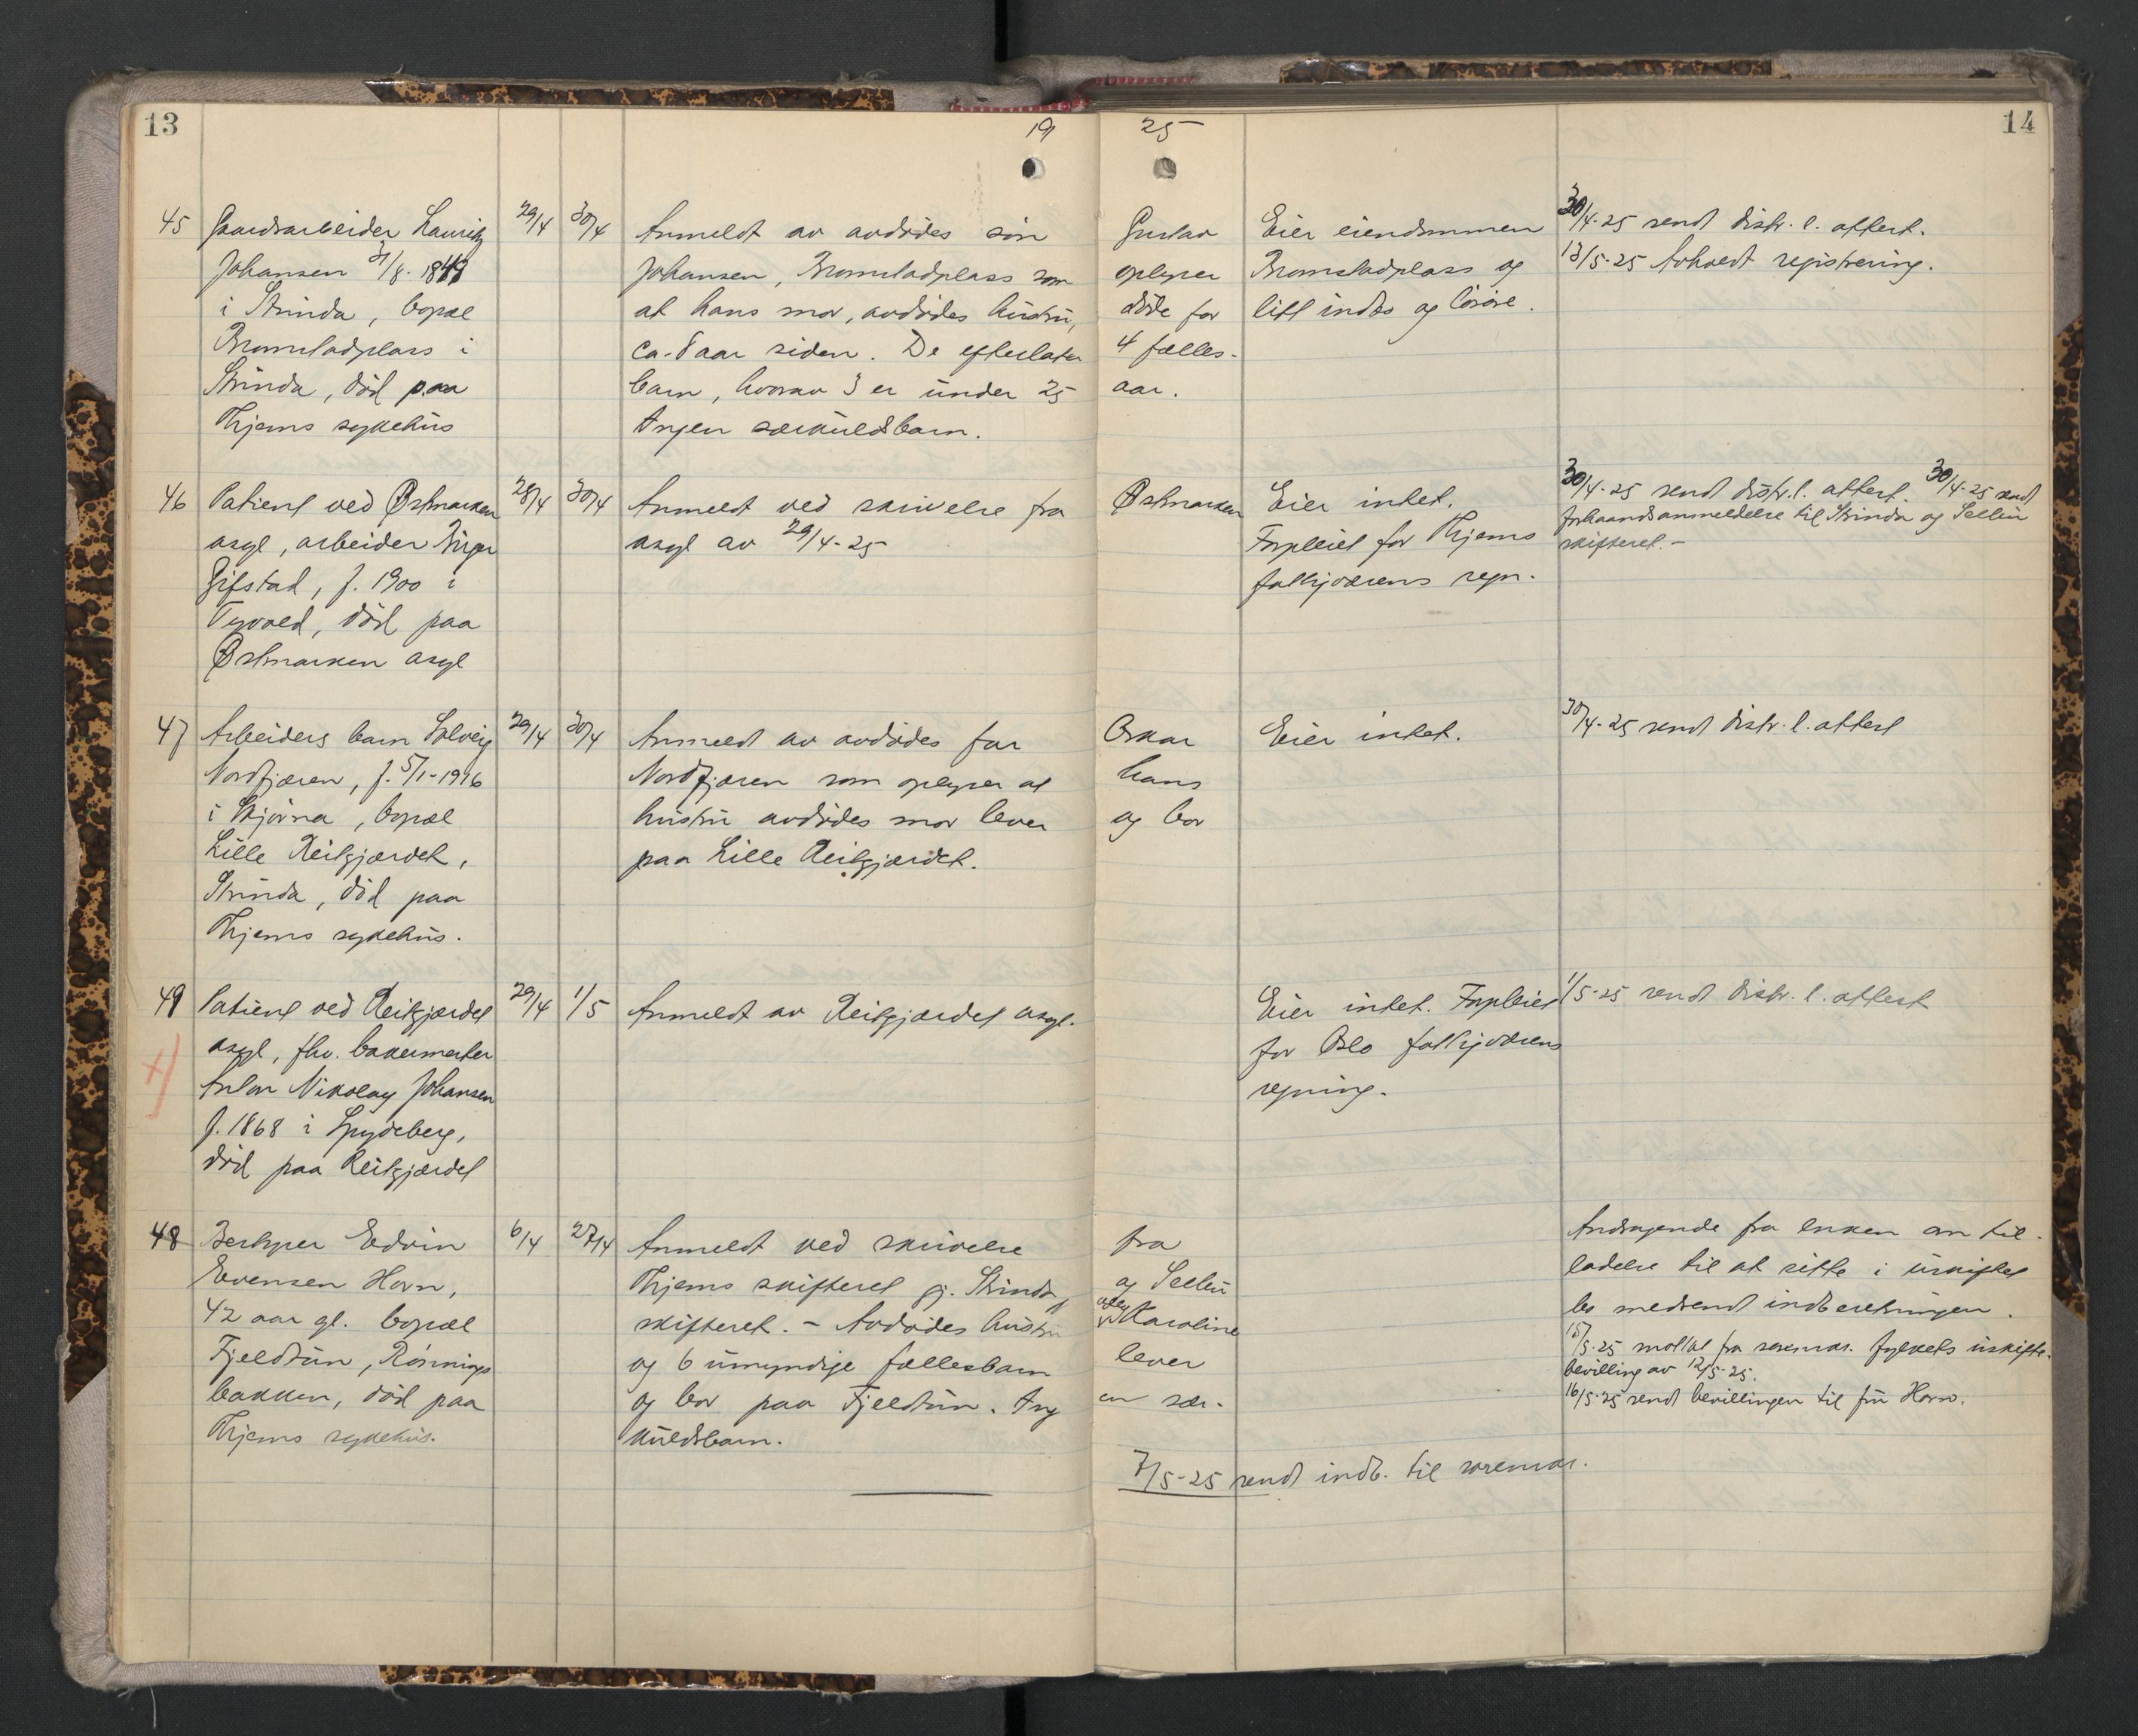 13
19 25
14
45 Gaardsarbeider Lauritz 29/4 30/4 Anmeldt av avdödes sön Gustav Eier eiendommen 30/4-25 sendt distr. l. attest.
Johansen 31/8. 1849 Johansen, Bromstadplass som oplyser Bromstadplass og 13/5-25 Avholdt registrering.
i Strinda, bopæl at hans mor, avdödes hustru, döde for litt indbo og lösöre.
Bromstadplass i ca. 8 aar siden. De efterlater 4 fælles-
Strinda, död paa barn, hvorav 3 er under 25 aar.
Thjems sykehus Ingen særkuldsbarn.
46 Patient ved Østmarken 28/4 30/4 Anmeldt ved skrivelse fra Østmarken Eier intet. 30/4-25 sendt distr.l. attest. 30/4-25 sendt
asyl, arbeider asyl av 29/4-25 Forpleiet for Thjems forhaandsanmeldelse til Strinda og Selbu
Gifstad, f. 1900 i fattigvæsens regn. skifteret.-
død paa
Østmarken asyl
47 Arbeiders barn Solveig 29/4 30/4 Anmeldt av avdödes far Oskar Eier intet. 30/4-25 sendt distr. l. attest
Nordfjæren, f. 5/1-1916 Nordfjæren som oplyser at hans
i Stjörna, bopæl hustru avdödes mor lever og bor
Lille Reitgjærdet, paa Lille Reitgjærdet.
Strinda, död paa
Thjems sykehus.
49 Patient ved Reitgjærdet 29/4 1/5 Anmeldt av Reitgjærdet asyl. Eier intet. Forpleiet 1/5-25 sendt distr. l. attest
asyl, fhv. bakermester for Oslo fattigvæsens
Anton Nikolay Johansen regning.
f. 1868 i Spydeberg,
död paa Reitgjærdet
48 Edvin 6/4 27/4 Anmeldt ved skrivelse fra Andragende fra enken om til-
Evensen Horn, Thjems skifteret gj. Strinda og Selbu ladelse til at sitte i uskiftet
42 aar gl. bopæl skifteret. - Avdödes hustru Karoline bo medsendt indberetningen.
Fjeldtun, Rönnings- og 6 umyndige fællesbarn lever 15/5-25 mottat fra sorenskr. fylkets uskifte-
bakken, död paa og bor paa Fjeldtun. Ing en sær- bevilling av 12/5-25.
Thjems sykehus. kuldsbarn. 16/5-25 sendt bevillingen til fru Horn.
7/5-25 sendt indb. til sorenskr.